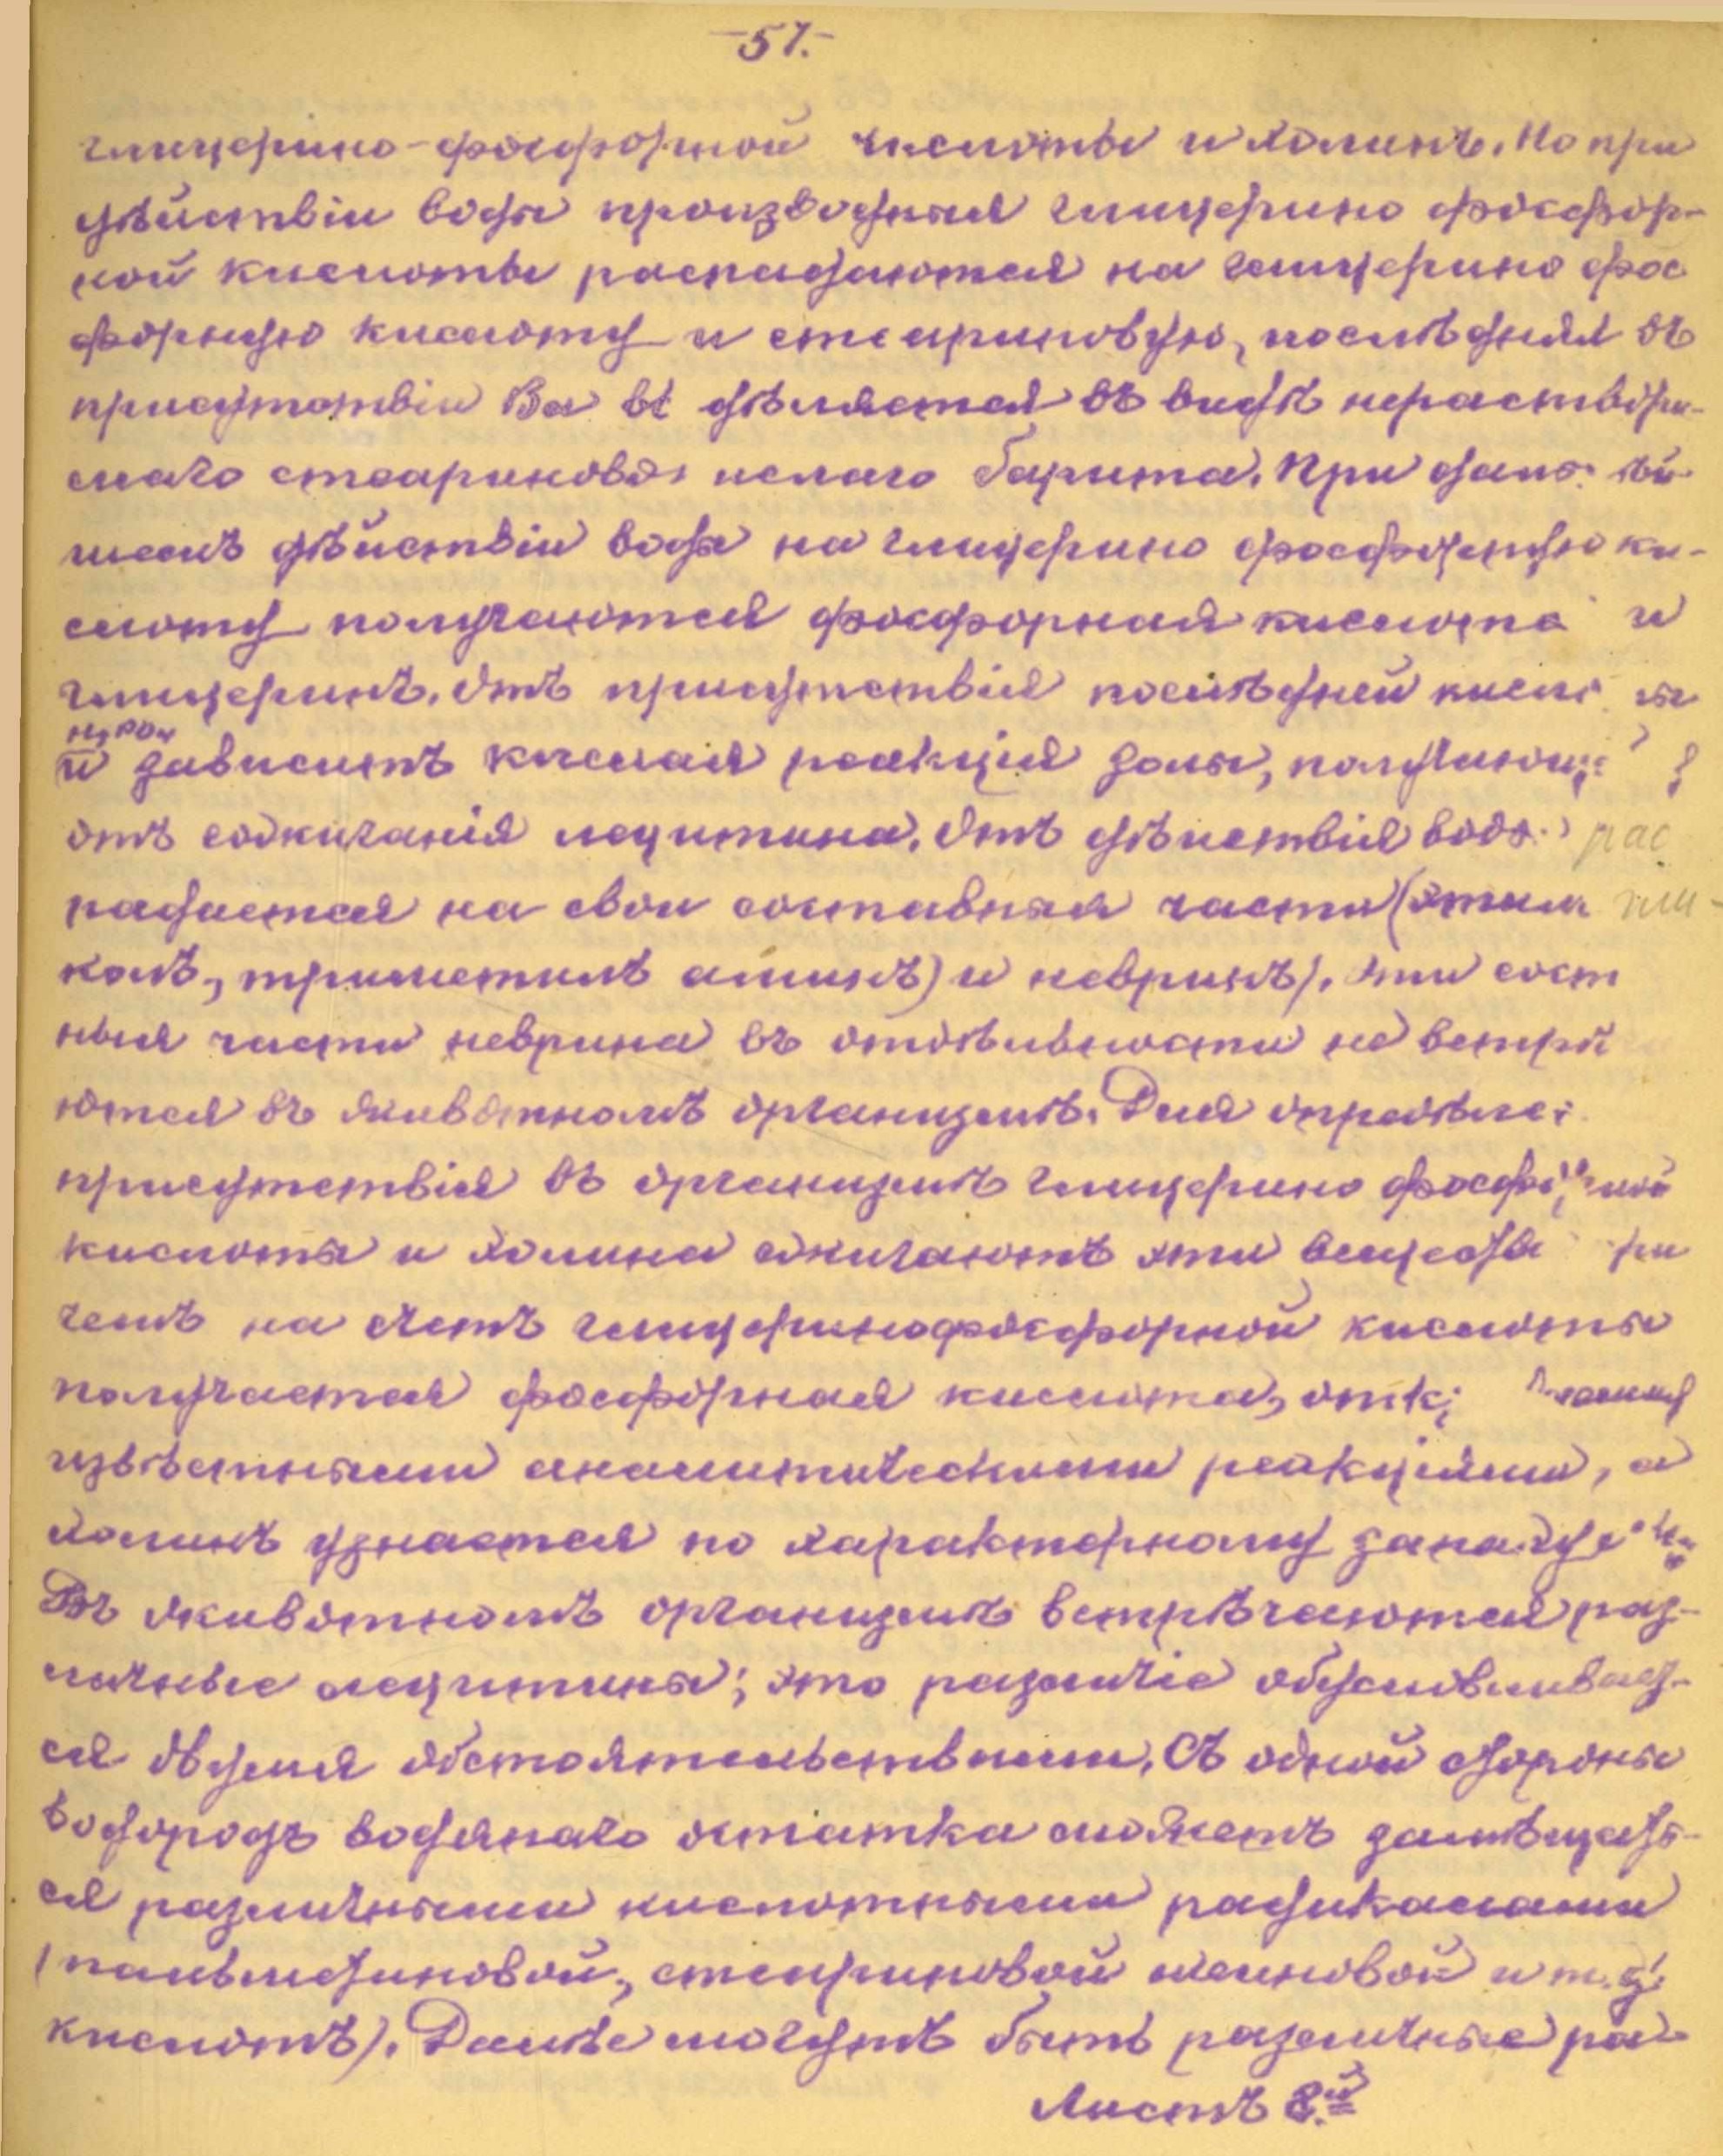 -57.-
глицерино-фосфорной кислоты и холинъ. Но при
дѣйствіи воды производныя глицерино фосфор-
ной кислоты распадаются на глицерино фос
форную кислоту и стеариновую, послѣдняя въ
присутствіи Ba вы дѣляется въ видѣ нераствори-
маго стеариново кислаго барита. При даль ѣй
шемъ дѣйствіи воды на глицерино фосфорную ки-
слоту получаются фосфорная кислота и
глицеринъ. Отъ присутствія послѣдней кисло ы
H3PO4
и зависитъ кислая реакція золы, получающ
отъ сожиганія лецитина. Отъ дѣйствія воды рас
падается на свои составныя части (этил гли-
коль, триметилъ аминъ) и невринъ). Эти сост
ныя части неврина въ отдѣльности не встрѣ
ются въ животномъ организмѣ. Для опредѣле
присутствія въ организмѣ глицерино фосфорной
кислоты и холина сжигаютъ эти вещества ри
чемъ на счетъ глицеринофосфорной кислоты
получается фосфорная кислота, отк
извѣстными аналитическими реакціями, а
холинъ узнается по характерному запаху
Въ животномъ организмѣ встрѣчаются раз-
личные лецитины; это различіе обусловливает-
ся двумя обстоятельствами. Съ одной стороны
водородъ водянаго остатка можетъ замѣщать-
ся различными кислотными радикалами
(пальметиновой, стеариновой олеиновой и т. д.
кислотъ). Далѣе могутъ быть различные ра-
Листъ 8.й